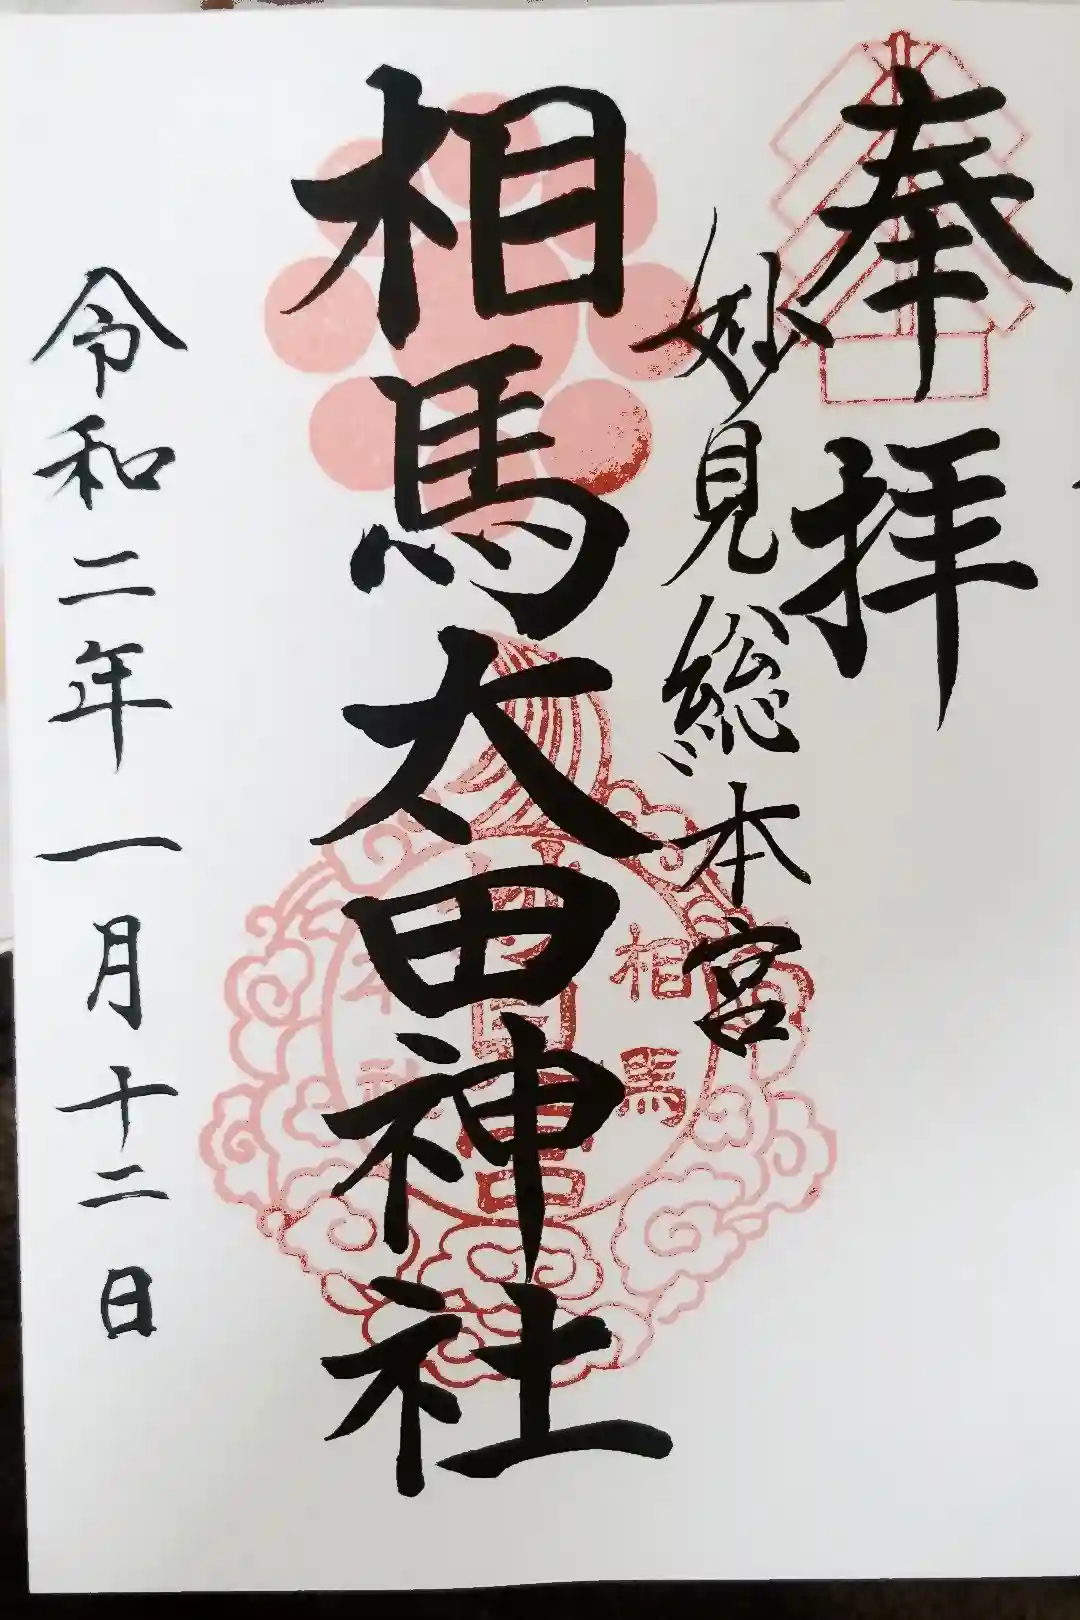 奉拝
妙見総本宮
相馬太田神社
令和二年一月十二日
相馬
本社